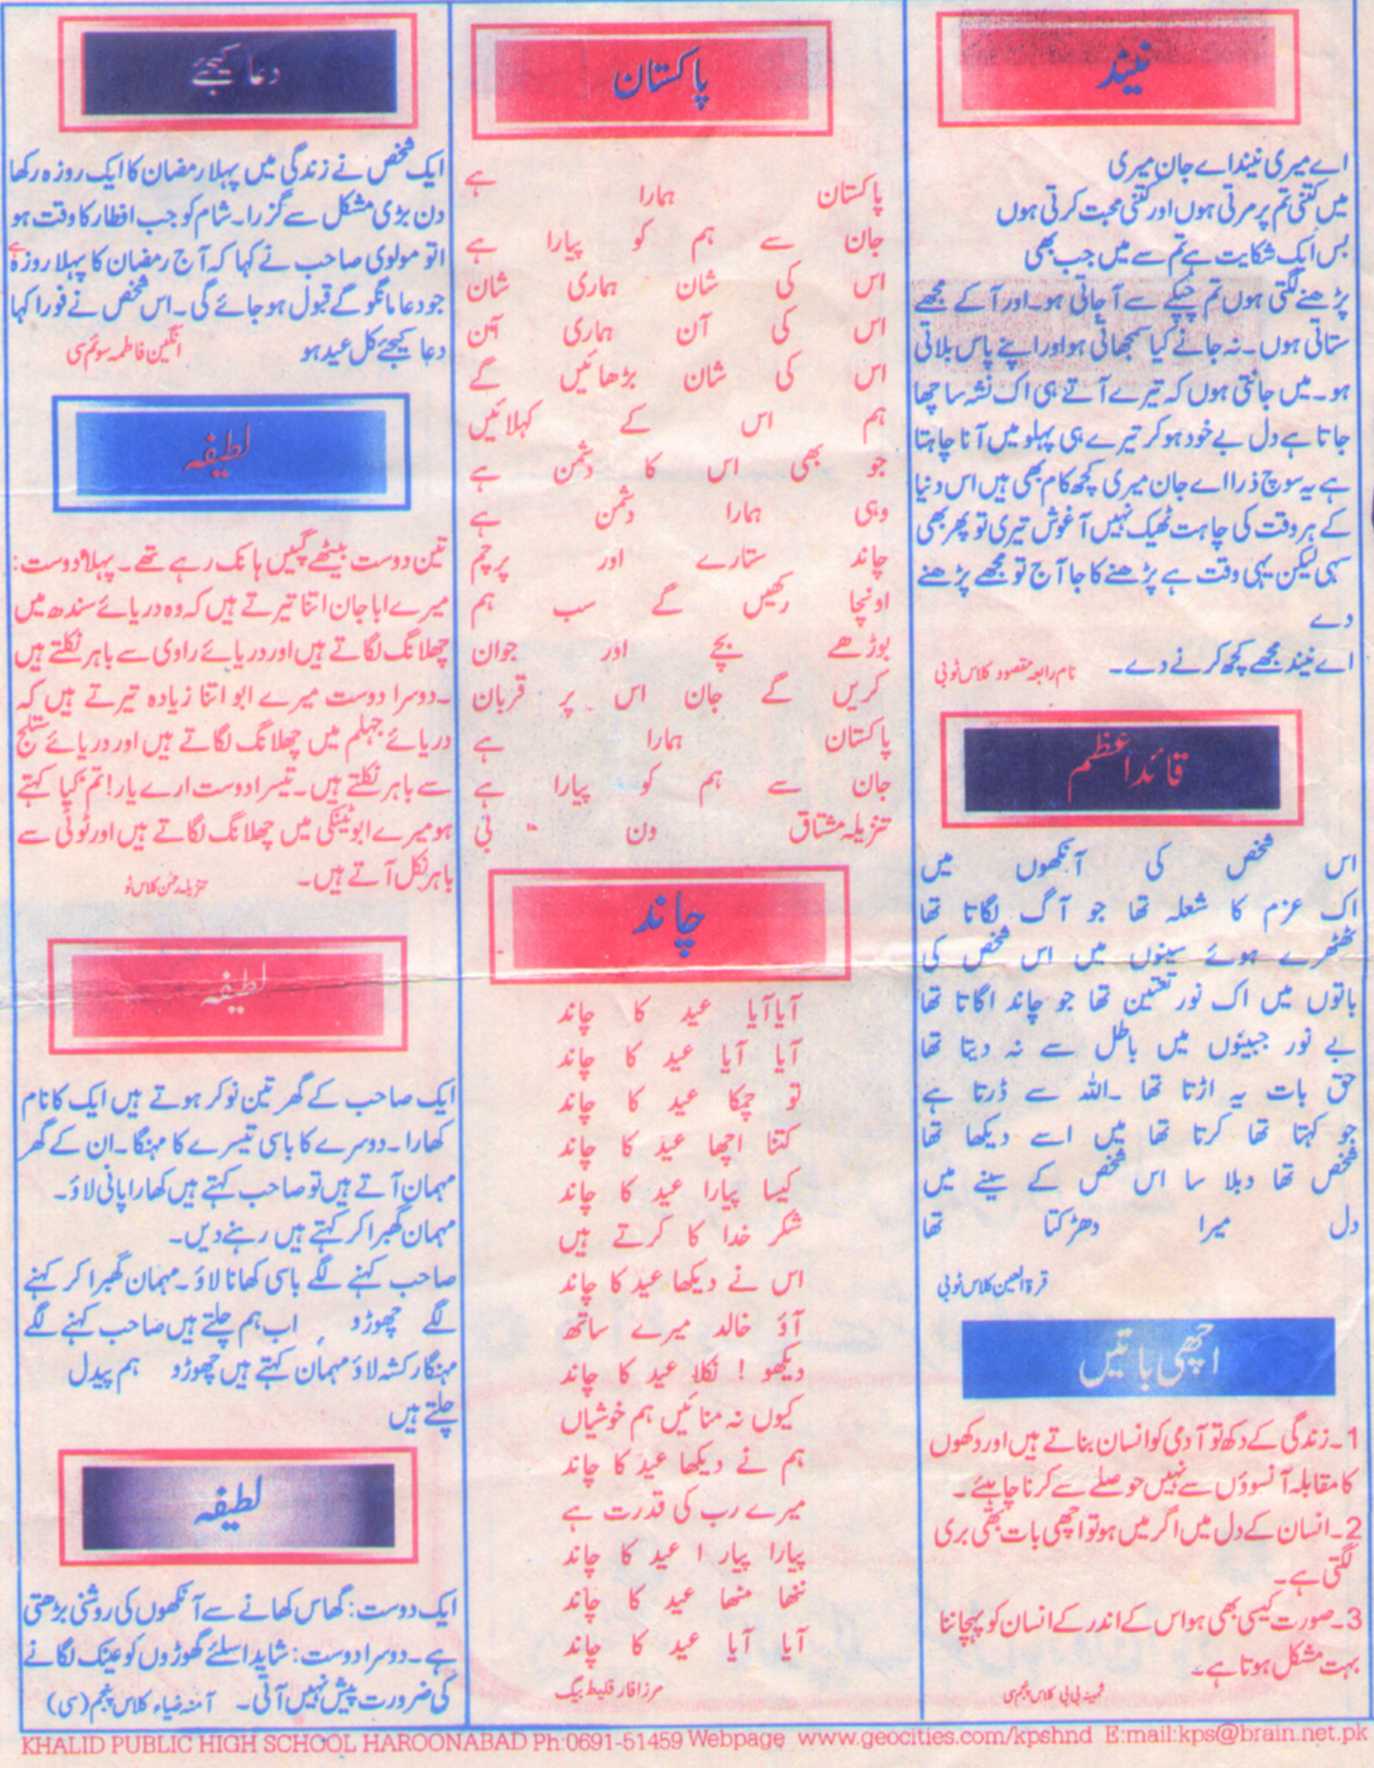 نیند
اے میری نیند اے جان میری
میں کتنی تم پر مرتی ہوں اور کتنی محبت کرتی ہوں
بس ایک شکایت ہے تم سے میں جب بھی
پڑھنے لگتی ہوں تم چپکے سے آ جاتی ہو۔ اور آ کے مجھے
ستاتی ہوں۔ نہ جانے کیا سمجھاتی ہو اور اپنے پاس بلاتی
ہو۔ میں جانتی ہوں کہ تیرے آتے ہی اک نشہ سا چھا
جاتا ہے دل بے خود ہو کر تیرے ہی پہلو میں آنا چاہتا
ہے یہ سوچ ذرا اے جان میری کچھ کام بھی ہیں اس دنیا
کے ہر وقت کی چاہت ٹھیک نہیں آغوش تیری تو پھر بھی
سہی لیکن یہی وقت ہے پڑھنے کا جا آج تو مجھے پڑھنے
دے
اے نیند مجھے کچھ کرنے دے۔ نام رابعہ مقصود کلاس ٹو بی
قائداعظم
اس شخص کی آنکھوں میں
اک عزم کا شعلہ تھا جو آگ لگاتا تھا
ٹھٹھرے ہوئے سینوں میں اس شخص کی
باتوں میں اک نور تعین تھا جو چاند اگاتا تھا
بے نور جبینوں میں باطل سے نہ دبتا تھا
حق بات پہ اڑتا تھا ۔اللہ سے ڈرتا ہے
جو کہتا تھا کرتا تھا میں اسے دیکھا تھا
شخص تھا دبلا سا اس شخص کے سینے میں
دل میرا دھڑکتا تھا
قرۃ العین کلاس ٹو بی
اچھی باتیں
1۔ زندگی کے دکھ تو آدمی کو انسان بناتے ہیں اور دکھوں
کا مقابلہ آنسوؤں سے نہیں حوصلے سے کرنا چاہئے۔
2۔ انسان کے دل میں اگر میں ہو تو اچھی بات بھی بری
لگتی ہے۔
3۔ صورت کیسی بھی ہو اس کے اندر کے انسان کو پہچاننا
بہت مشکل ہوتا ہے۔
ثمینہ بی بی کلاس پنجم سی
پاکستان
پاکستان ہمارا ہے
جان سے ہم کو پیارا ہے
اس کی شان ہماری شان
اس کی آن ہماری آن
اس کی شان بڑھائیں گے
ہم اس کے کہلائیں
جو بھی اس کا دشمن ہے
وہی ہمارا دشمن ہے
چاند ستارے اور پرچم
اونچا رکھیں گے سب ہم
بوڑھے بچے اور جوان
کریں گے جان اس پر قربان
پاکستان ہمارا ہے
جان سے ہم کو پیارا ہے
تنزیلہ مشتاق ون بی
چاند
آیا آیا عید کا چاند
آیا آیا عید کا چاند
تو چمکا عید کا چاند
کتنا اچھا عید کا چاند
کیسا پیارا عید کا چاند
شکر خدا کا کرتے ہیں
اس نے دیکھا عید کا چاند
آؤ خالد میرے ساتھ
دیکھو ! نکلا عید کا چاند
کیوں نہ منائیں ہم خوشیاں
ہم نے دیکھا عید کا چاند
میرے رب کی قدرت ہے
پیارا پیارا عید کا چاند
ننھا منھا عید کا چاند
آیا آیا عید کا چاند
مرزا فار قلیط بیگ
دعا کیجئے
ایک شخص نے زندگی میں پہلا رمضان کا ایک روزہ رکھا
دن بڑی مشکل سے گزرا۔ شام کو جب افطار کا وقت ہو
اتو مولوی صاحب نے کہا کہ آج رمضان کا پہلا روزہ ہے
جو دعا مانگو گے قبول ہو جائے گی۔ اس شخص نے فورا کہا
دعا کیجئے کل عید ہو انگبین فاطمہ سوئم سی
لطیفہ
تین دوست بیٹھے گپیں ہانک رہے تھے۔ پہلا دوست:
میرے ابا جان اتنا تیرتے ہیں کہ وہ دریائے سندھ میں
چھلانگ لگاتے ہیں اور دریائے راوی سے باہر نکلتے ہیں
۔دوسرا دوست میرے ابو اتنا زیادہ تیرتے ہیں کہ
دریائے جہلم میں چھلانگ لگاتے ہیں اور دریائے ستلج
سے باہر نکلتے ہیں۔ تیسرا دوست ارے یار! تم کیا کہتے
ہو میرے ابو ٹینکی میں چھلانگ لگاتے ہیں اور ٹوٹی سے
باہر نکل آتے ہیں۔ تنزیلہ رحمٰن کلاس ٹو
لطیفہ
ایک صاحب کے گھر تین نوکر ہوتے ہیں ایک کا نام
کھارا۔ دوسرے کا باسی تیسرے کا مہنگا۔ ان کے گھر
مہمان آتے ہیں تو صاحب کہتے ہیں کھارا پانی لاؤ۔
مہمان گھبرا کر کہتے ہیں رہنے دیں۔
صاحب کہنے لگے باسی کھانا لاؤ۔ مہمان گھبرا کر کہنے
لگے چھوڑو اب ہم چلتے ہیں صاحب کہنے لگے
مہنگا رکشہ لاؤ مہمان کہتے ہیں چھوڑو ہم پیدل
چلتے ہیں
لطیفہ
ایک دوست: گھاس کھانے سے آنکھوں کی روشنی بڑھتی
ہے۔ دوسرا دوست: شاید اسلئے گھوڑوں کو عینک لگانے
کی ضرورت پیش نہیں آتی۔ آمنہ ضیاء کلاس پنجم (سی)
KHALID PUBLIC HIGH SCHOOL HAROONABAD Ph:0691-51459 Webpage www.geocities.com/kpshnd E:mail:kps@brain.net.pk